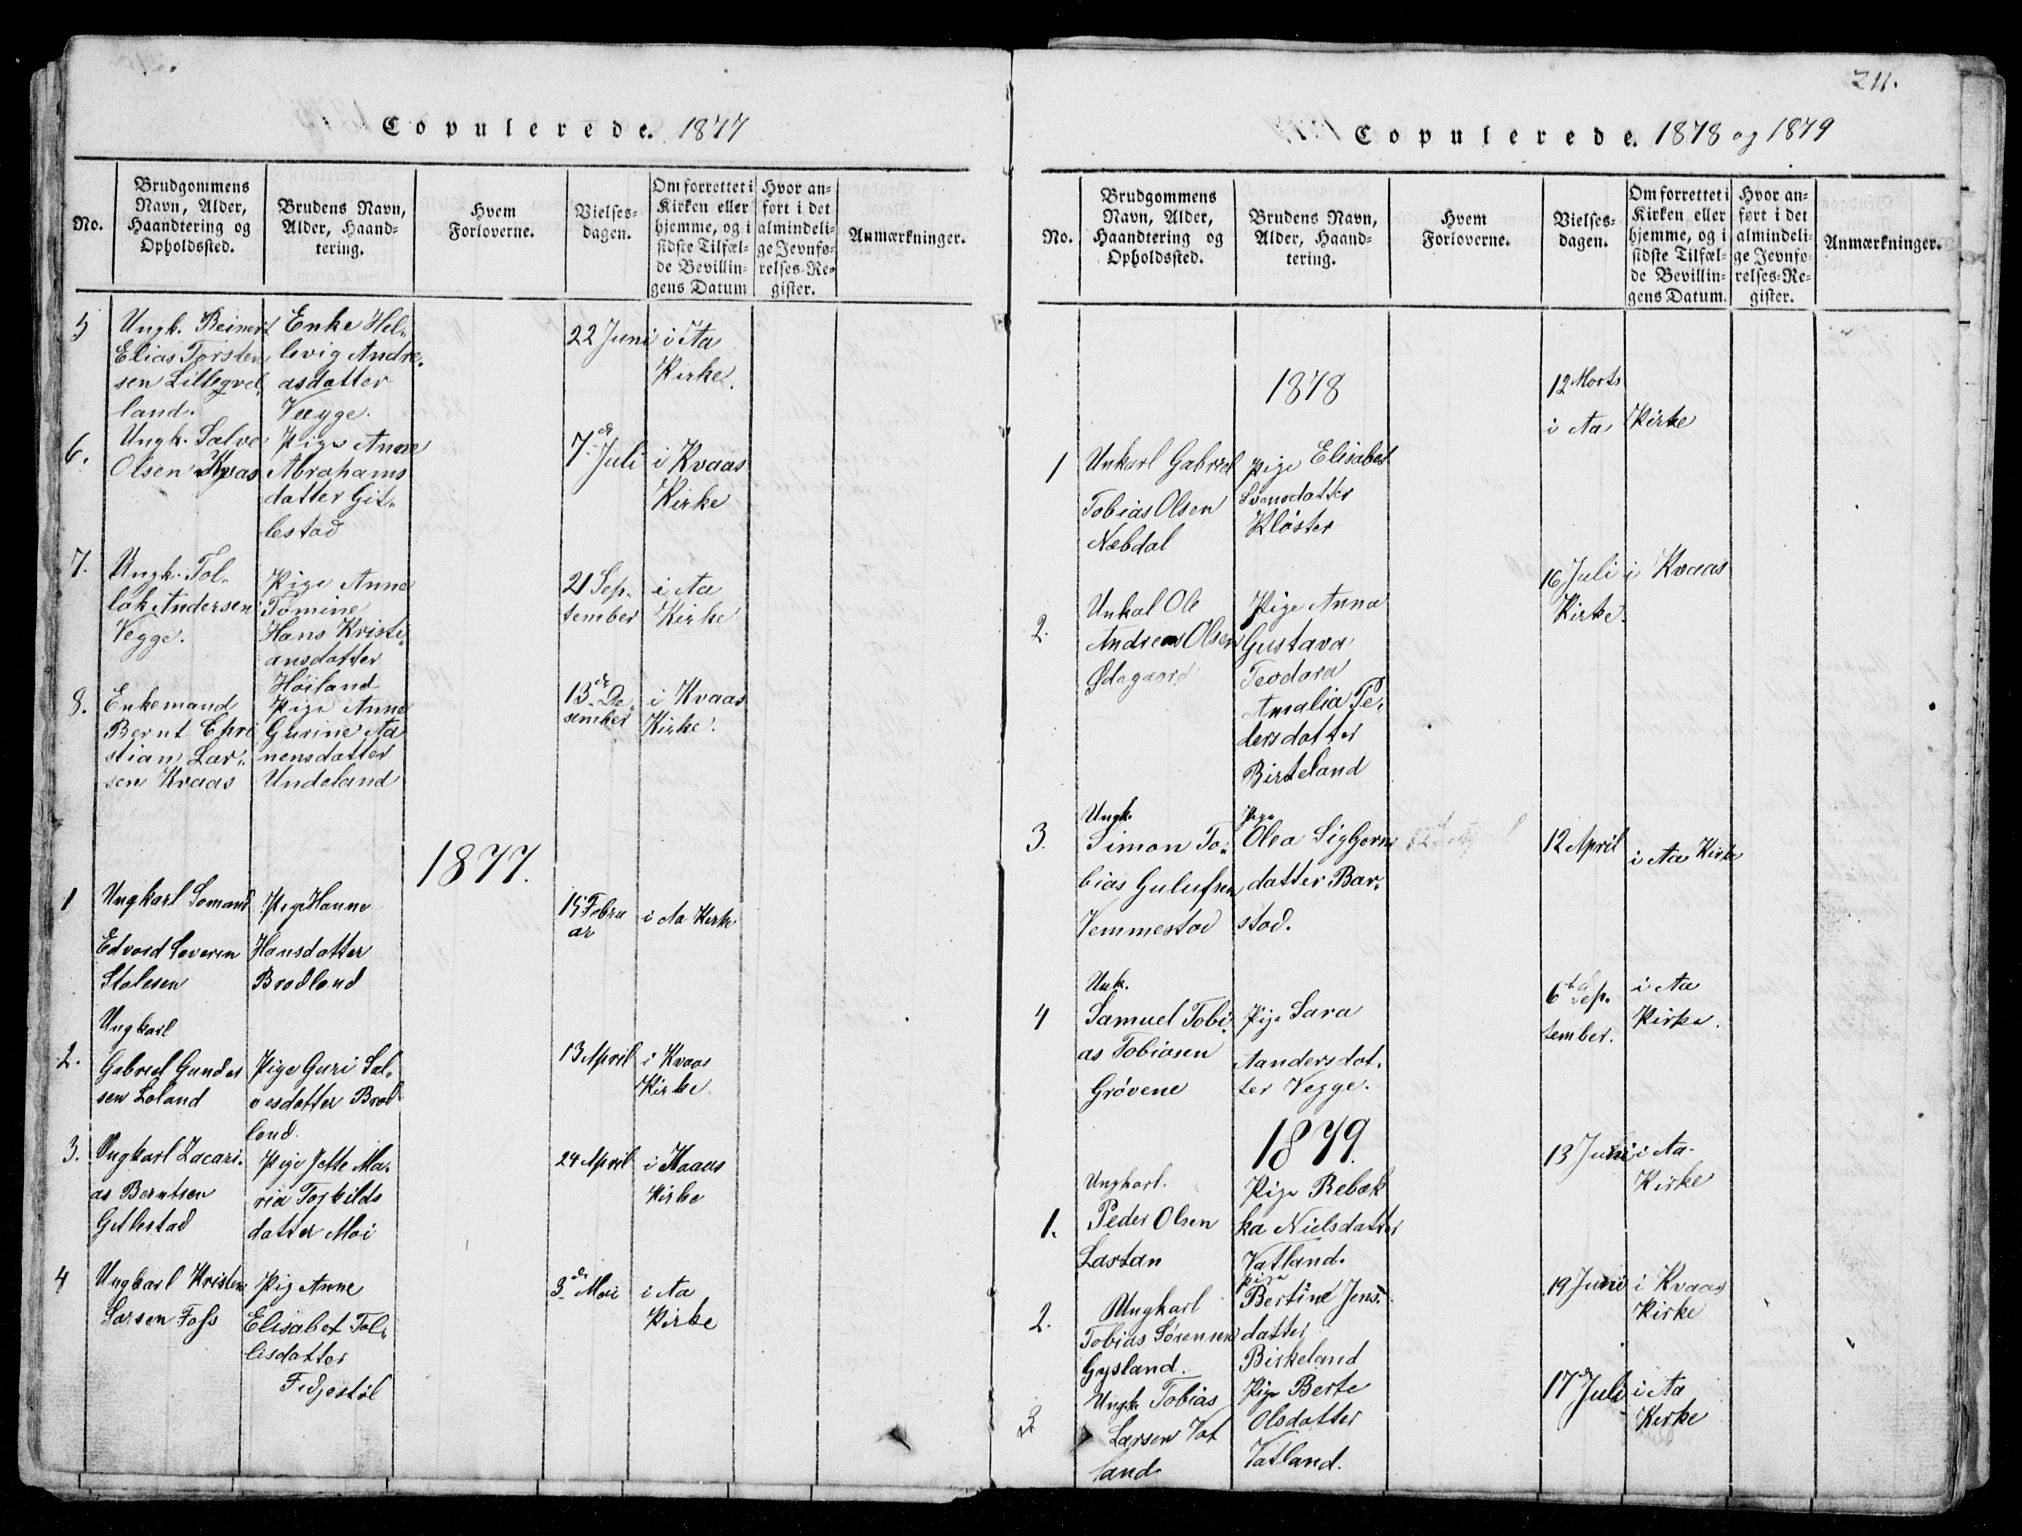 Copulerede. 1877
No.
Brudgommens
Navn, Alder,
Haandtering og
Opholdssted.
Brudens Navn,
Alder, Haand-
tering.
Hvem
Forloverne.
Vielses-
dagen.
Om forrettet i
Kirken eller
hjemme, og i
sidste Tilfæl-
de Bevillin-
gens Datum
Hvor an-
ført i det
almindeli-
ge Jevnfø-
relses-Re-
gister.
Anmærkninger.
5
Ungk. Reinert
Elias Torsten
sen Lillegvel
land.
Enke Hel-
levig Andre-
asdatter
Vægge.
22 Juni
i Aa
Kirke.
6.
Ungk. Salve
Olsen Kvaas
Pige Anne
Abrahams
datter Git-
lestad
7de Juli
i Kvaas
Kirke
7.
Ungk. Tol-
lak Andersen
Vegge.
Pige Anne
Tomine
Hans Kristi-
ansdatter
Høiland
21 Sep-
tember
i Aa
Kirke
8.
Enkemand
Bernt Chri
stian Lar-
sen Kvaas
Pige Anne
Gurine Aa
nensdatter
Undeland
13de De-
sember
i Kvaas
Kirke.
1877.
1
Ungkarl Somand
Edvard Severin
Stolesen
Pige Hanne
Hansdatter
Brodland
15 Febru
ar
i Aa Kirke
2.
Ungkarl
Gabriel Gunder
sen Loland
Pige Guri Sal-
vesdatter Brod
land.
13 April
i Kvaas
Kirke.
3.
Ungkarl Zacari-
as Berntsen
Getlestad
Pige Jette Ma-
ria Torkilds
datter Moi
24 April
i Kvaas
Kirke
4
Ungkarl Kristen
Larsen Foss
Pig Anne
Elisabet Tol-
lisdatter
Fidjestøl
3de Mai
i Aa
Kirke
211.
Copulerede. 1878 og 1879
No.
Brudgommens
Navn, Alder,
Haandtering og
Opholdssted.
Brudens Navn,
Alder, Haand-
tering.
Hvem
Forloverne.
Vielses-
dagen.
Om forrettet i
Kirken eller
hjemme, og i
sidste Tilfæl-
de Bevillin-
gens Datum.
Hvor an-
ført i det
almindeli-
ge Jevnfø-
relses-Re-
gister.
Anmærkninger.
1878
12 Marts
i Aa Kirke
1
Unkarl Gabriel
Tobias Olsen
Nebdal
Pige Elisabet
Svensdatter
Kløster
2.
Unkal Ole
Andreas Olsen
Ødegaard
Pige Anna
Gustava
Teodora
Amalia Pe-
dersdatter
Birkeland
16 Juli i Kvaas
Kirke.
3.
Ungk.
Simon To-
bias Gulufsen
Vemmestad
Pige
Olea Sigbjorns
datter Bar-
stad.
12 April
i Aa Kirke
4
Unk.
Samuel Tobi-
as Tobiasen
Grövene
Pige Sara
Aandersdat-
ter Vegge.
6te Sep-
tember.
i Aa
Kirke.
1879.
1.
Ungkarl.
Peder Olsen
Lastan
Pige Rebæk
ka Nielsdatter
Vatland.
13 Juni
i Aa
Kirke
2.
Ungkarl
Tobias Sørensen
Gysland.
Pige
Bertine Jens-
datter
Birkeland
19 Juni
i Kvaas
Kirke
3
Ungk Tobias
Larsen Vat
land
Pige Berte
Olsdatter
Vatland.
17de Juli
i Aa
Kirke